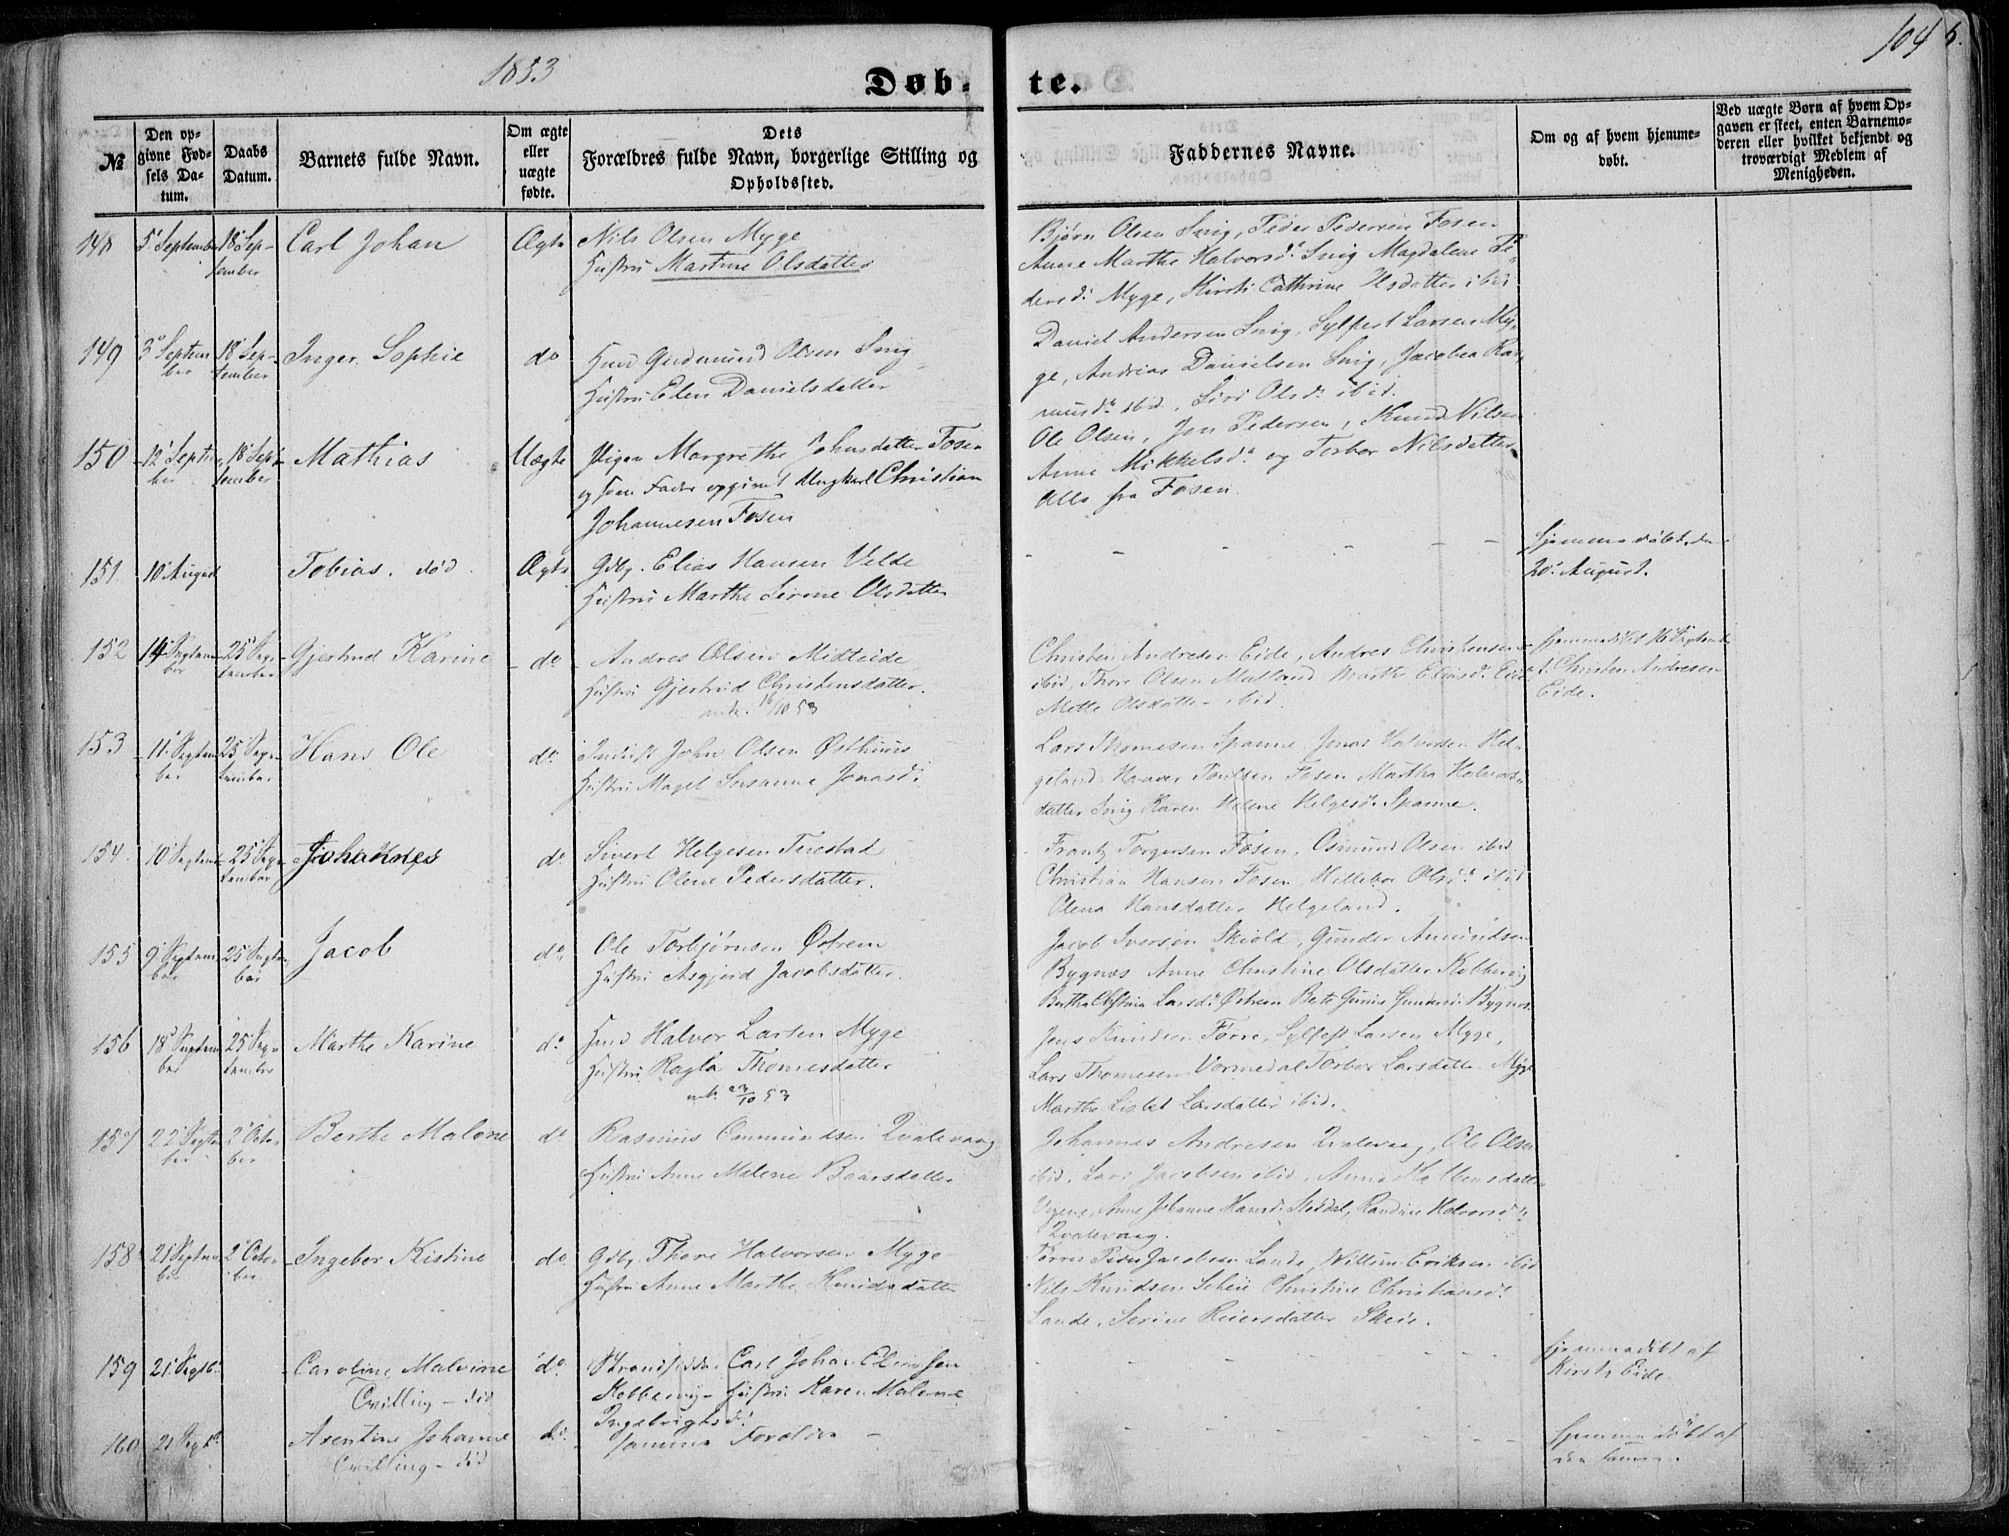 1853
Døb-
te.
104
№
Den op-
givne Fød-
sels Da-
tum.
Daabs
Datum.
Barnets fulde Navn.
Om ægte
eller
uægte
fødte.
Dets
Forældres fulde Navn, borgerlige Stilling og
Opholdssted.
Faddernes Navne.
Om og af hvem hjemme-
døbt.
Ved uægte Børn af hvem Op-
gaven er skeet, enten Barnemo-
deren eller hvilket bekjendt og
troværdigt Medlem af
Menigheden.
148 5 September 18 Sep-
tember
Carl Johan
Ægte
Nils Olsen Myge
Hustru Martine Olsdatter
Bjørn Olsen Snig, Peder Pedersen Fosen
Anne Marthe Halvorsd. Snig Magdalene Pe-
dersd. Myge, Kirsti Cathrine Olsdatter ibid
149 3 Septem
ber
18 Sep-
tember
Inger Sophie
do
Hmd Gudmund Olsen Snig
Hustru Elen Danielsdatter
Daniel Andersen Snig, Sylfest Larsen My-
ge, Andreas Danielsen Snig, Jacobea Ras-
musd. ibid, Siri Olsd. ibid.
150 12 Septem
ber
18 Sep-
tember
Mathias
Uægte
Pigen Margrethe Johnsdatter Fosen
og som Fader opgivet Ungkarl Christian
Johannesen Fosen
Ole Olsen, Jon Pedersen, Knud Nilsen
Anne Mikkelsd. og Torbor Nilsdatter
Alle fra Fosen.
151. 10 August
Tobias. død.
Ægte
Gdbr. Elias Hansen Velde
Hustru Marthe Serine Olsdatter
- - - - - -
hjemmedøbt den
20. August.
152 14 Septem
ber
25 Sep-
tember
Gjertrud Karine
do
Andres Olsen Midteide
Hustru Gjertrud Christensdatter.
16/10 53
Christen Andresen Eide, Andres Christensen
ibid, Thore Olsen Matland Marthe Eliasd. Eide
Mette Olsdatter ibid.
hjemmedøbt 16 Septemb.
af Christen Andresen
Eide.
153 11 Septem
ber
25 Sep-
tember
Hans Ole
do
John Olsen Østhuus
Hustru Magel Susanne Jonasd.
Lars Thomesen Spanne, Jonas Halvorsen Hel-
geland Haaver Poulsen Fosen Martha Halvors-
datter Snig Karen Helene Helgesd. Spanne.
154. 10 Septem 25 Sep-
tember
Johannes
do
Sivert Helgesen Tuestad
Hustru Olene Pedersdatter.
Frantz Torgersen Fosen, Osmund Olsen ibid
Christian Hansen Fosen, Hillebor Olsd. ibid
Olena Hansdatter Helgeland.
155 9 Septem
ber
25 Septem
ber
Jacob
do
Ole Torbjørnsen Østrem
Hustru Asgjerd Jacobsdatter.
Jacob Iversen Skiold, Gunder Amundsen
Bygnæs Anne Christine Olsdatter Kobbervig
Bertha Christina Larsd. Østrem Bygnæs.
156 18 Septem
ber
25 Sep-
tember
Marthe Karine
do
Hmd Halvor Larsen Myge
Hustru Ragla Thomesdatter
23/10 53
Jens Knudsen Førre, Sylfest Larsen Myge,
Lars Thomesen Vormedal Torbor Larsdatter Myge
Marthe Lisbet Larsdatter ibid.
157 22 Septem
ber
2 Octo-
ber
Berthe Malene
do
Rasmus Ommundsen Qvalevaag
Hustru Anne Malene Baarsdatter
Johannes Andresen Qvalevaag, Ole Olsen
ibid, Lars Jacobsen ibid, Anna Kolbensdatter
Anne Johanne Hansd. Støddal, Randine Halvorsd.
Qvalevaag.
158 21 Septem
ber
2 Octo-
ber
Ingebor Kistine
do
Gdbr. Thore Halvorsen Myge
Hustru Anne Marthe Knudsdatter
Peder Jacobsen Lande, Willum Eriksen ibid
Nils Knudsen Scheie Christine Christiansd.
Lande, Serine Reiersdatter Skeie.
159 21. Septb.
Caroline Malvine
Tvilling - død
do.
Strandsidder Carl Johan
Kobbervig - Hustru Karen Malene
Ingebrigtsd.
- - - - - -
hjemmedøbt af
Kirsti Eide
160 21 Septb.
Arentine Johanne
Tvilling - død
do.
samme Forældre -
- - - - - -
hjemmedøbt af
den samme.